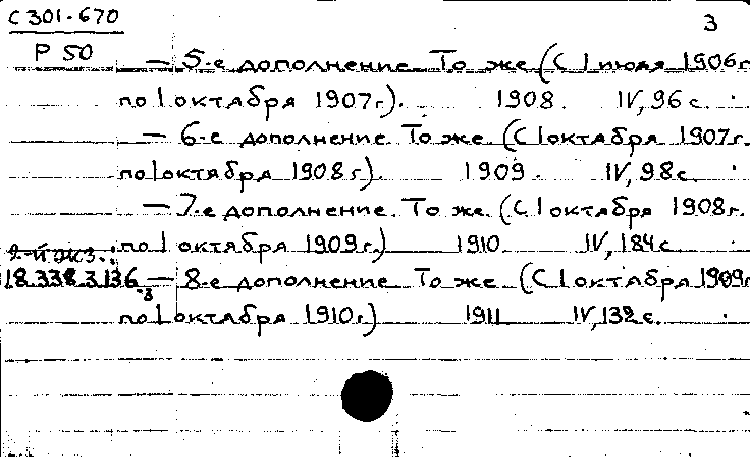 С 301-670
3
Р 50
— 5-е дополнение. То же (С 1 июля 1906г.
по 1 октября 1907г.). 1908. IV, 96 с.
— 6-е дополнение. То же. (С 1 октября 1907г.
по 1 октября 1908г.). 1909. IV, 98с.
— 7-е дополнение. То же. (С 1 октября 1908г.
по 1 октября 1909г.) 1910. IV, 184с
2-й экз.:
18.338.3.136 — 8-е дополнение. То же (С 1 октября 1909г
-8
по 1 октября 1910г.) 1911 IV, 132 с.